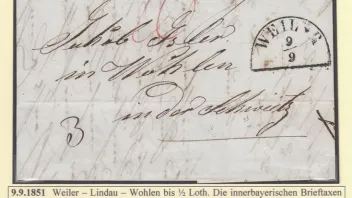 WEILER
9
9
Jakob Isler
in Wohlen
in der Schweitz
3
9.9.1851 Weiler – Lindau – Wohlen bis ½ Loth. Die innerbayerischen Brieftaxen